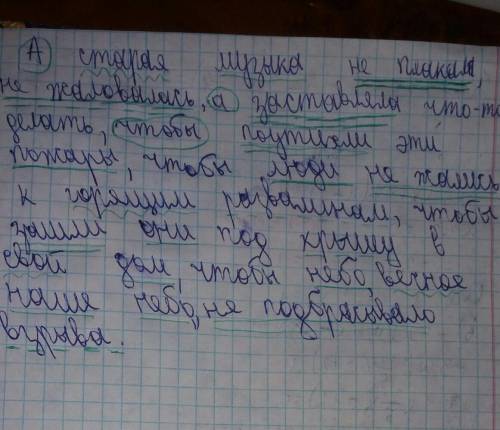 А старая музыка не плакала,
не жаловалась, а заставляла что-то
делать, чтобы потухли эти
пожары, чтобы люди не жались
к горящим развалинам, чтобы
зашли они под крышу в
свой дом, чтобы небо, вечное
наше небо, не подбрасывало
взрыва.